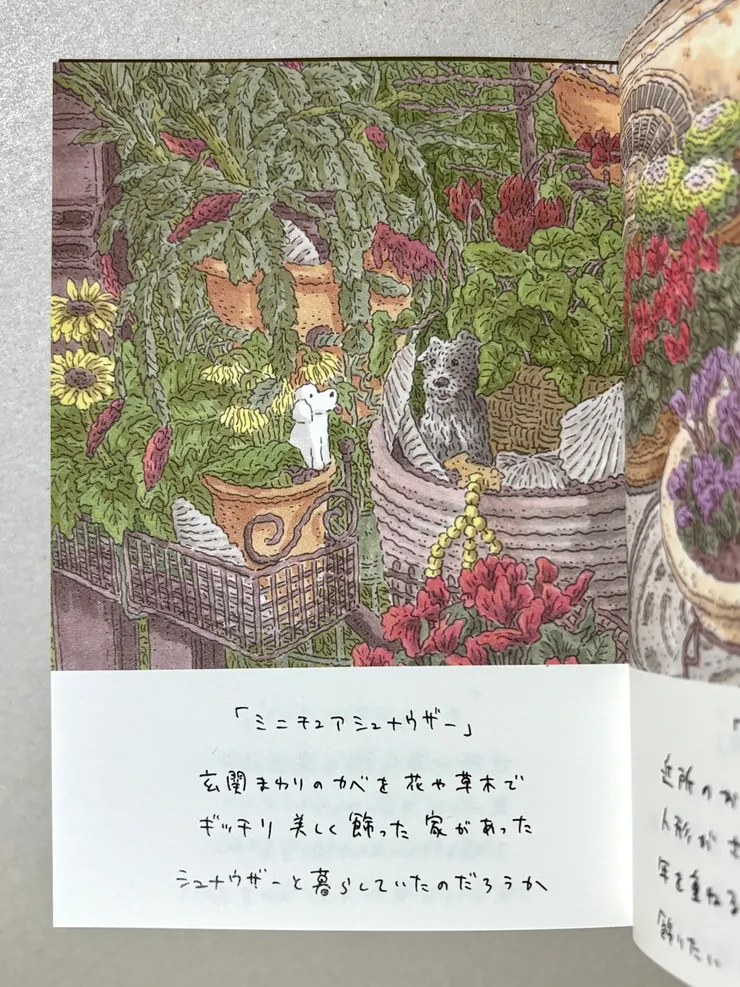 「ミニチュアシュナウザー」
玄関まわりのカベを花や草木で
ギッチリ美しく飾った家があった
シュナウザーと暮らしていたのだろうか
近所の
人形が
年を重ねる
飾りたい